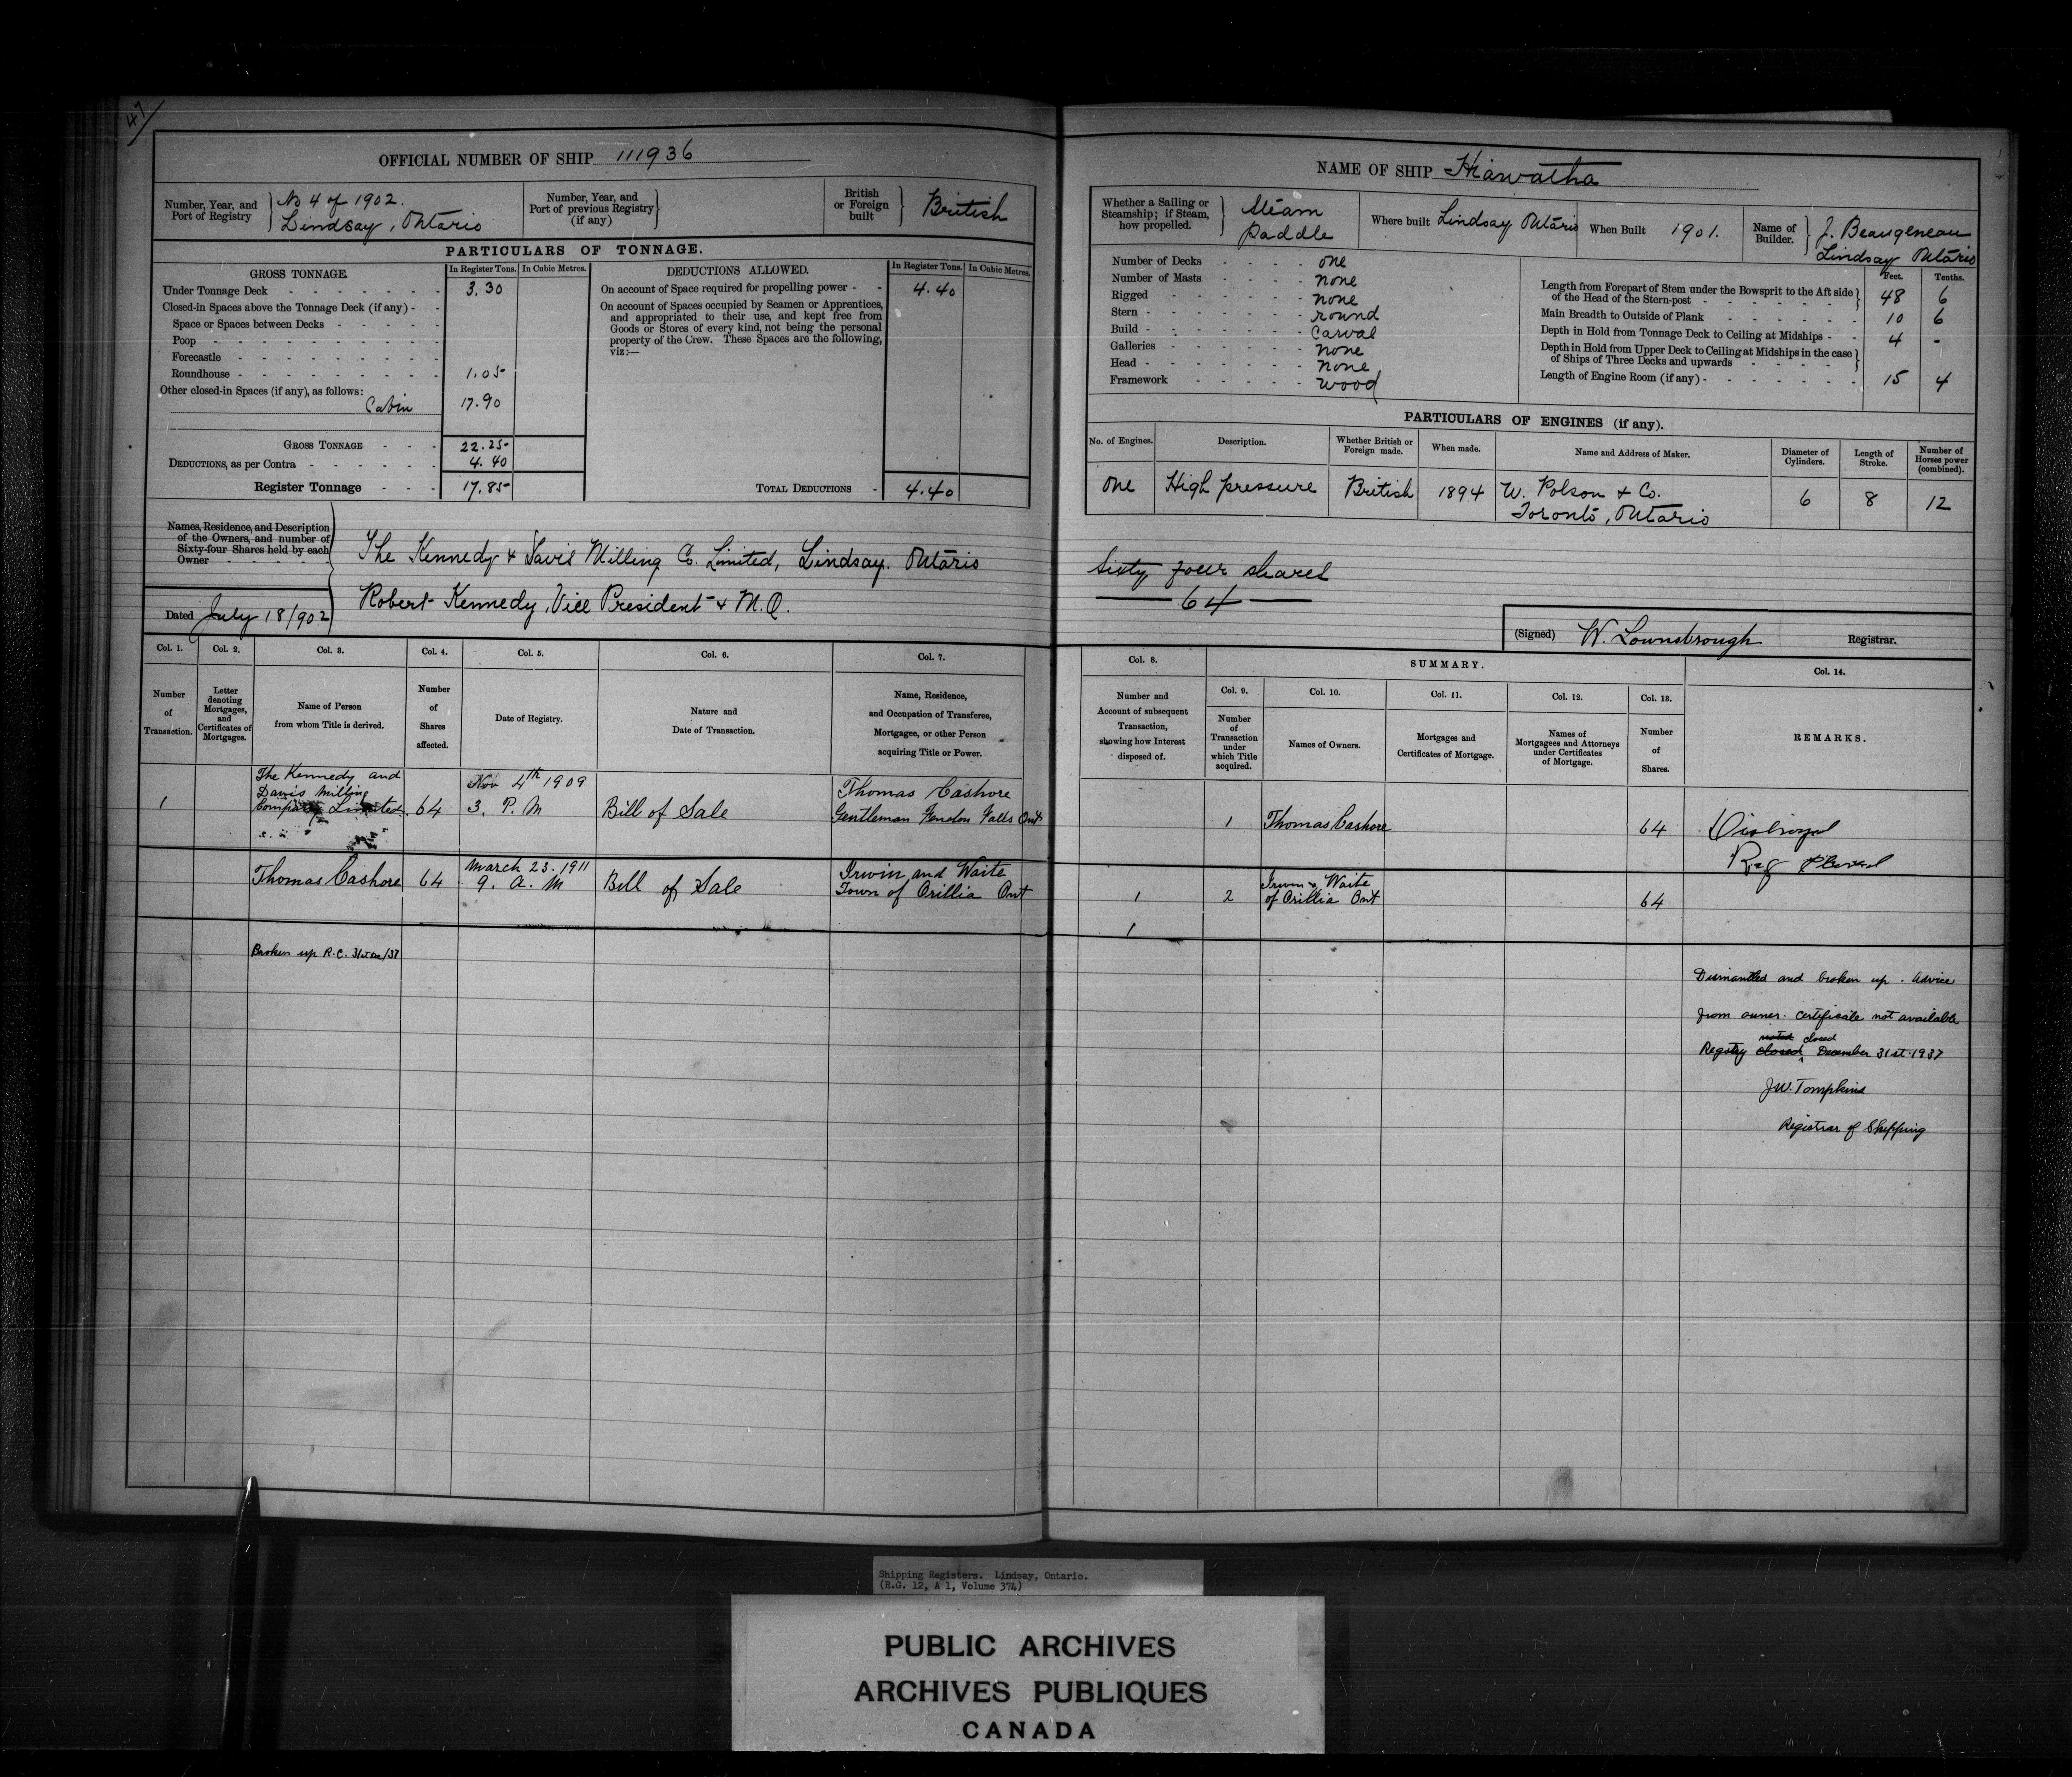 47
OFFICIAL NUMBER OF SHIP 111936
Number, Year, and Port of Registry
No 4 of 1902.
Lindsay, Ontario
Number, Year, and Port of previous Registry (if any)
British or Foreign built
British
PARTICULARS OF TONNAGE.
GROSS TONNAGE.
In Register Tons.
In Cubic Metres.
DEDUCTIONS ALLOWED.
In Register Tons.
In Cubic Metres.
Under Tonnage Deck - 3.30
On account of Space required for propelling power - 4.40
Closed-in Spaces above the Tonnage Deck (if any) -
Space or Spaces between Decks -
Poop -
Forecastle -
Roundhouse - 1.05
Other closed-in Spaces (if any), as follows:
Cabin 17.90
On account of Spaces occupied by Seamen or Apprentices,
and appropriated to their use, and kept free from
Goods or Stores of every kind, not being the personal
property of the Crew. These Spaces are the following,
viz:—
GROSS TONNAGE - 22.25
DEDUCTIONS, as per Contra - 4.40
Register Tonnage - 17.85
TOTAL DEDUCTIONS - 4.40
Names, Residence, and Description
of the Owners, and number of
Sixty-four Shares held by each
Owner
The Kennedy & Davis Milling Co. Limited, Lindsay. Ontario
Robert Kennedy, Vice President & M.D.
Dated July 18/902
Col. 1.
Number of Transaction.
Col. 2.
Letter denoting Mortgages, and Certificates of Mortgages.
Col. 3.
Name of Person
from whom Title is derived.
Col. 4.
Number of Shares affected.
Col. 5.
Date of Registry.
Col. 6.
Nature and
Date of Transaction.
Col. 7.
Name, Residence,
and Occupation of Transferee,
Mortgagee, or other Person
acquiring Title or Power.
1
The Kennedy and
Davis Milling
Company Limited
64
Nov 4th 1909
3. P. M
Bill of Sale
Thomas Cashore
Gentleman Fenelon Falls Ont
Thomas Cashore
64
March 23. 1911
9. a. M
Bill of Sale
Irwin and Waite
Town of Orillia Ont
Broken up R.C. 31st Dec/37
NAME OF SHIP Hiawatha
Whether a Sailing or
Steamship; if Steam,
how propelled.
Steam
Paddle
Where built Lindsay Ontario
When Built 1901.
Name of Builder.
J. Beaugeneau
Lindsay Ontario
Number of Decks - one
Number of Masts - none
Rigged - none
Stern - round
Build - Carval
Galleries - none
Head - none
Framework - wood
Feet.
Tenths.
Length from Forepart of Stem under the Bowsprit to the Aft side
of the Head of the Stern-post - 48 6
Main Breadth to Outside of Plank - 10 6
Depth in Hold from Tonnage Deck to Ceiling at Midships - 4 -
Depth in Hold from Upper Deck to Ceiling at Midships in the case
of Ships of Three Decks and upwards
Length of Engine Room (if any) - 15 4
PARTICULARS OF ENGINES (if any).
No. of Engines.
Description.
Whether British or Foreign made.
When made.
Name and Address of Maker.
Diameter of Cylinders.
Length of Stroke.
Number of Horses power (combined).
one
High pressure
British
1894
W. Polson & Co.
Toronto, Ontario
6
8
12
Sixty four shares
64
(Signed) W. Lownsbrough Registrar.
Col. 8.
Number and
Account of subsequent
Transaction,
showing how Interest
disposed of.
SUMMARY.
Col. 9.
Number of Transaction under which Title acquired.
Col. 10.
Names of Owners.
Col. 11.
Mortgages and
Certificates of Mortgage.
Col. 12.
Names of
Mortgagees and Attorneys
under Certificates
of Mortgage.
Col. 13.
Number of Shares.
Col. 14.
REMARKS.
1
Thomas Cashore
64
Reg
1
2
Irwin & Waite
of Orillia Ont
64
1
Dismantled and broken up. Advice
from owner. Certificate not available
noted closed
Registry closed December 31st 1937
J.W. Tompkins
Registrar of Shipping
Shipping Registers. Lindsay, Ontario.
(R.G. 12, A 1, Volume 374)
PUBLIC ARCHIVES
ARCHIVES PUBLIQUES
CANADA